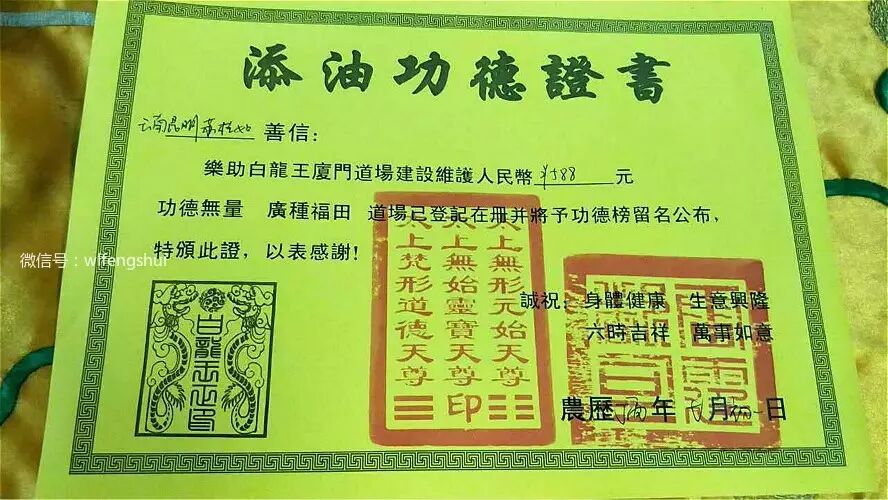 添油功德證書
云南昆明 善信：
樂助白龍王廈門道場建設維護人民幣¥588元
功德無量 廣種福田 道場已登記在冊并將予功德榜留名公布，
特頒此證，以表感謝！
微信号：wlfengshui
誠祝：身體健康 生意興隆
六時吉祥 萬事如意
農歷丙年月初一日
太上無形元始天尊
太上無始靈寶天尊
太上梵形道德天尊
印
白龍王印